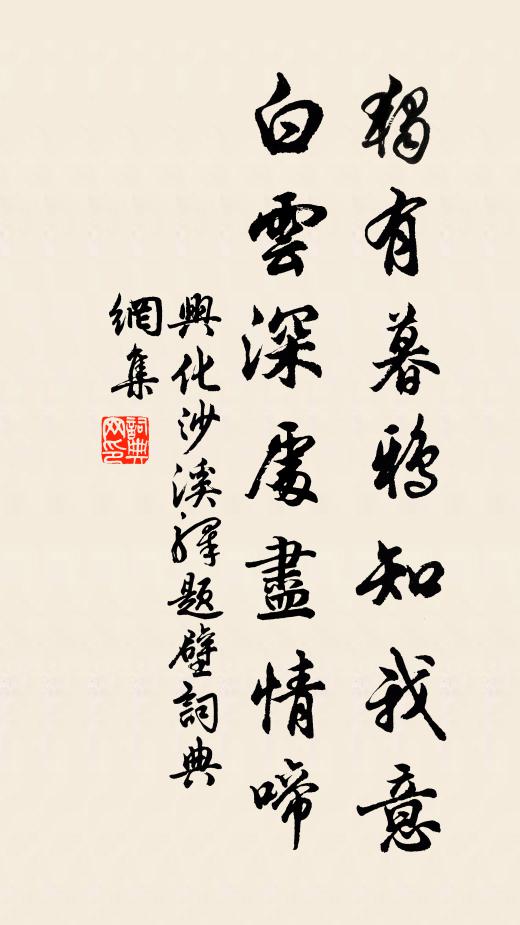 獨有暮鴉知我意
白雲深處盡情啼
興化沙溪驛題壁詞典
網集
詞典
网印